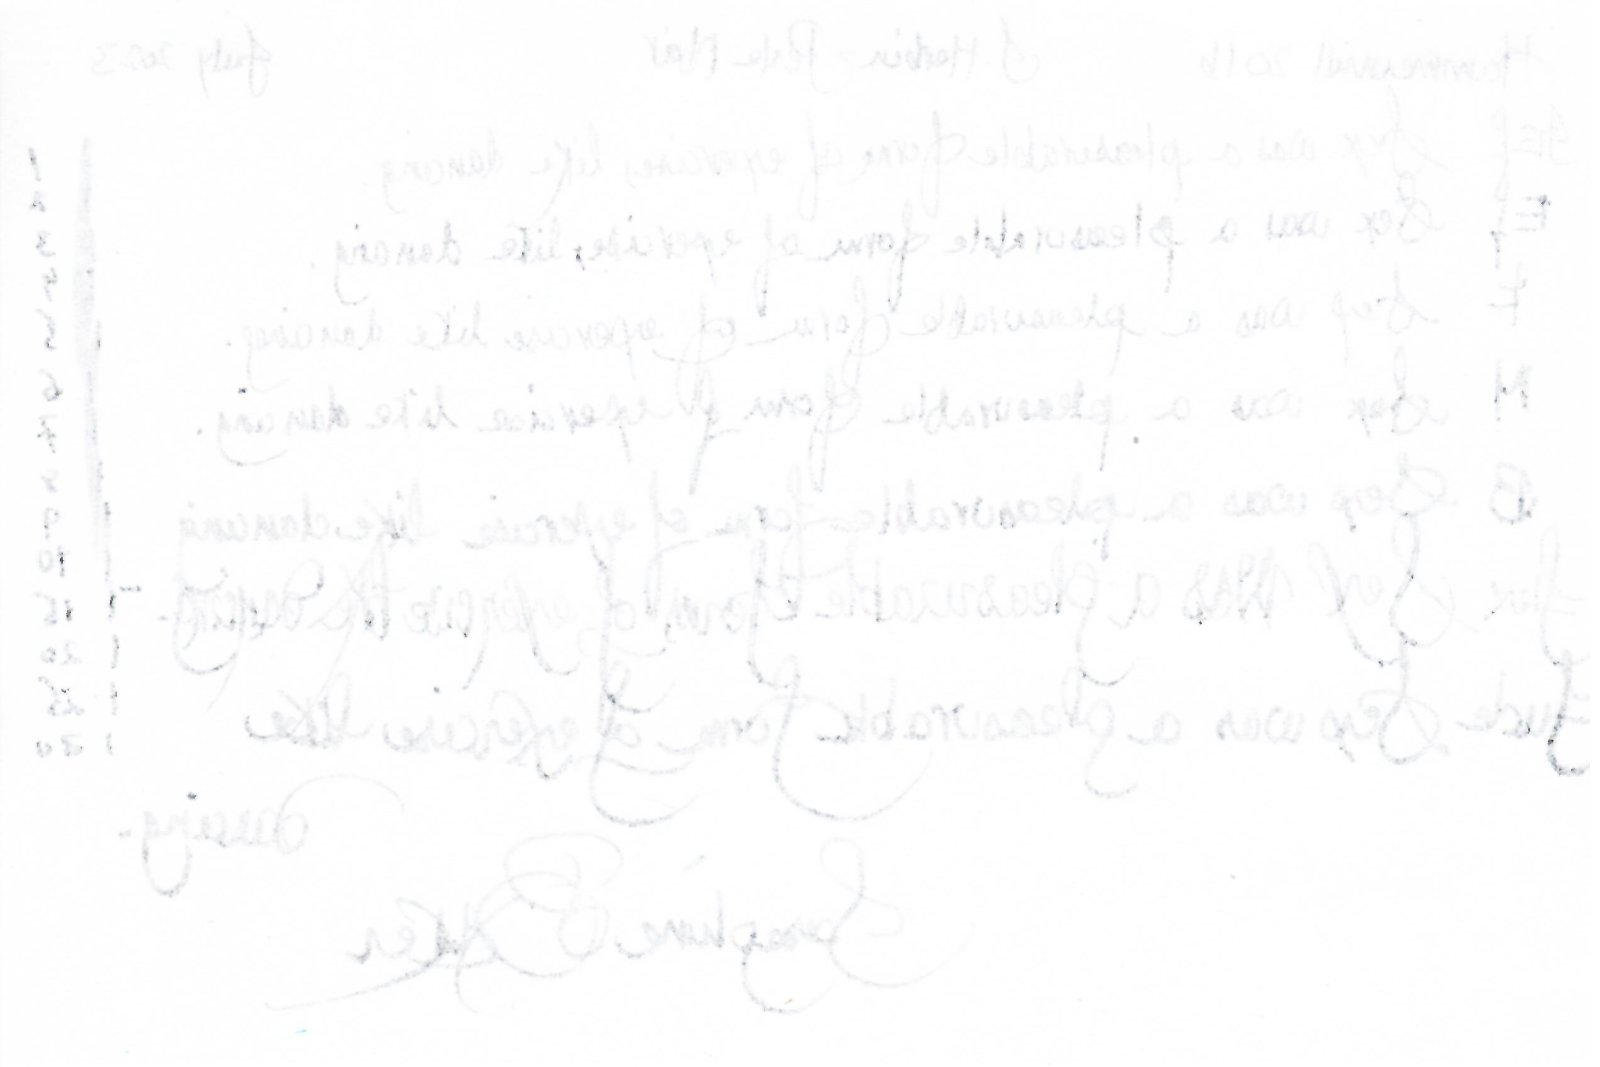 Hammermill 20lb J. Herbin - Perle Noir July 2023
EF Sex was a pleasurable form of exercise, like dancing
F Sex was a pleasurable form of exercise, like dancing.
F Sex was a pleasurable form of exercise like dancing.
M Sex was a pleasurable form of exercise like dancing.
B Sex was a pleasurable form of exercise like dancing
Flex Sex was a pleasurable form of exercise like dancing.
Fude Sex was a pleasurable form of exercise like
dancing.
Josephine Baker
1
2
3
4
5
6
7
8
9
10
15
20
25
30